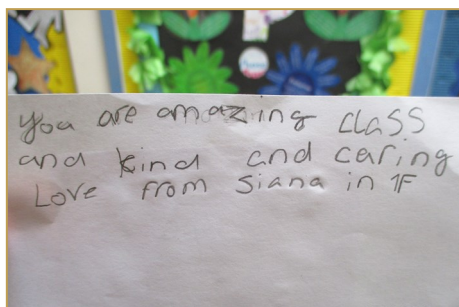 you are amazing class
and kind and caring
Love from Siana in 1F